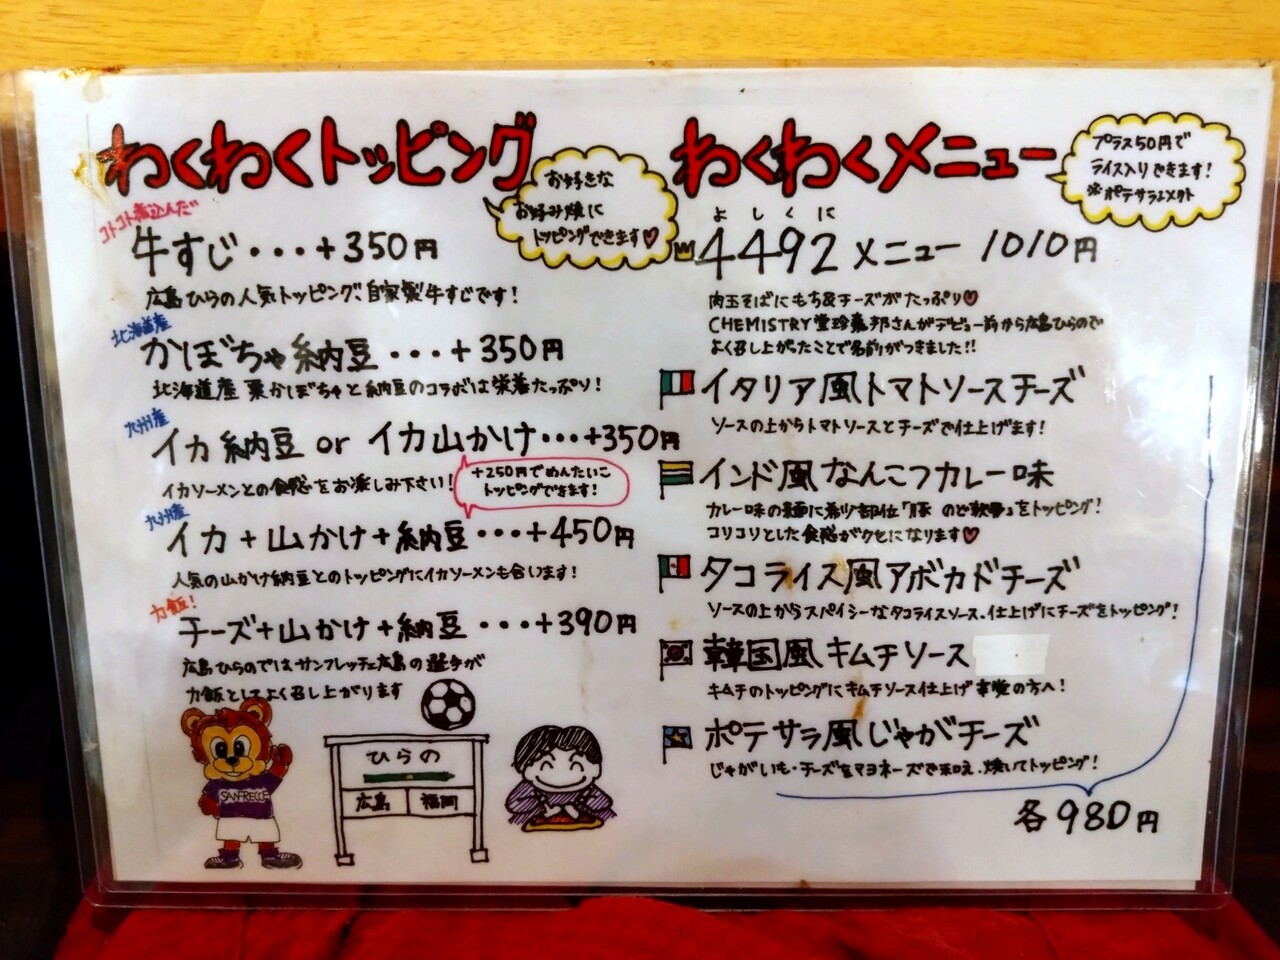 わくわくトッピング
お好きな
お好み焼に
トッピングできます♡
コトコト煮込んだ
牛すじ・・・+350円
広島ひらの人気トッピング、自家製牛すじです!
北海道産
かぼちゃ納豆・・・+350円
北海道産 栗かぼちゃと納豆のコラボは栄養たっぷり!
九州産
イカ納豆 or イカ山かけ・・・+350円
イカソーメンとの食感をお楽しみ下さい!
+250円でめんたいこ
トッピングできます!
九州産
イカ+山かけ+納豆・・・+450円
人気の山かけ納豆とのトッピングにイカソーメンも合います!
力飯!
チーズ+山かけ+納豆・・・+390円
広島ひらのではサンフレッチェ広島の選手が
力飯としてよく召し上がります
SANFRECCE
ひらの
広島 福岡
わくわくメニュー
プラス50円で
ライス入りできます!
※ポテサラ
よしくに
4492メニュー 1010円
肉玉そばにもち&チーズがたっぷり♡
CHEMISTRY堂珍嘉邦さんがデビュー前から広島ひらので
よく召し上がったことで名前がつきました!!
イタリア風トマトソースチーズ
ソースの上からトマトソースとチーズで仕上げます!
インド風なんこつカレー味
カレー味の麺に希少部位「豚 のど軟骨」をトッピング!
コリコリとした食感がクセになります♡
タコライス風アボカドチーズ
ソースの上からスパイシーなタコライスソース、仕上げにチーズをトッピング!
韓国風キムチソース
キムチのトッピングにキムチソース仕上げ 辛党の方へ!
ポテサラ風じゃがチーズ
じゃがいも・チーズをマヨネーズで和え、焼いてトッピング!
各980円